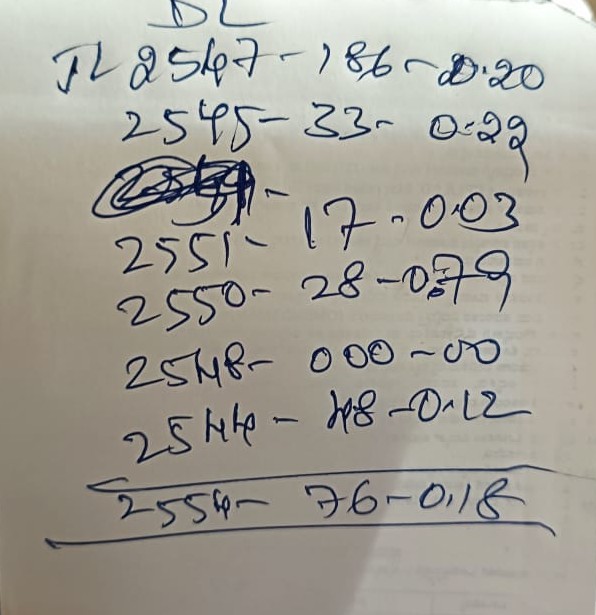 DL
JL 2547 - 186 - 0.20
2545 - 33 - 0.29
2551 - 17 - 0.03
2550 - 28 - 0.79
2548 - 000 - 00
2544 - 48 - 0.12
2554 - 76 - 0.18